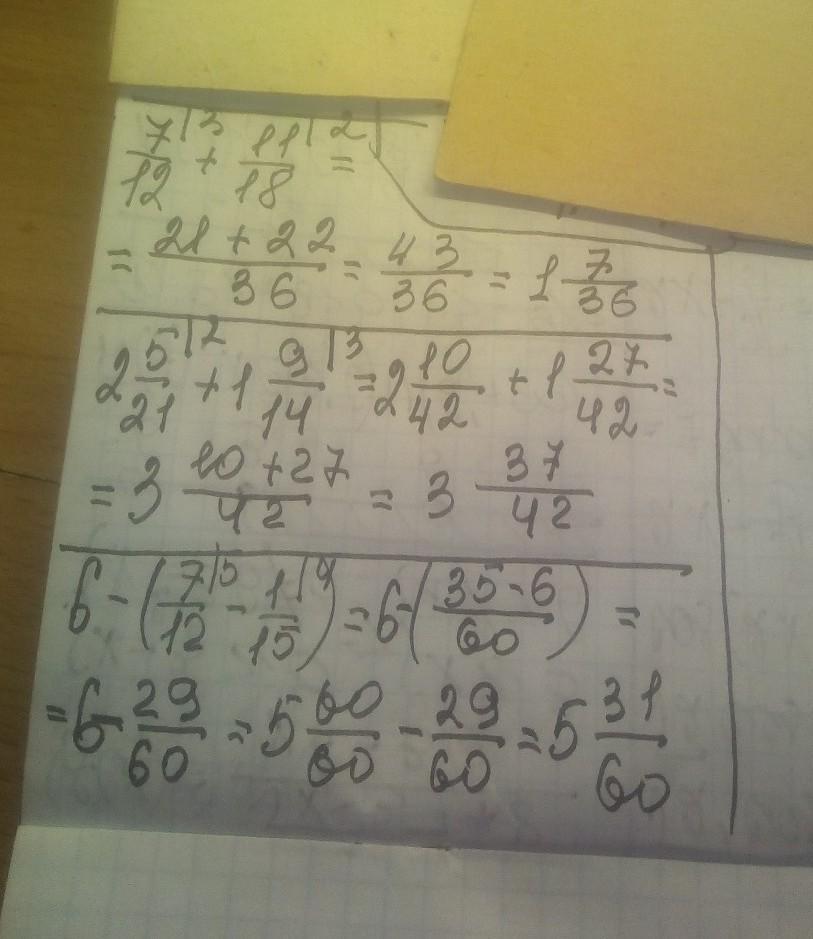 7/12 |3 + 11/18 |2 =
= (21 + 22)/36 = 43/36 = 1 7/36
2 5/21 |2 + 1 9/14 |3 = 2 10/42 + 1 27/42 =
= 3 (10 + 27)/42 = 3 37/42
6 - (7/12 |5 - 1/15 |4) = 6 - ((35 - 6)/60) =
= 6 - 29/60 = 5 60/60 - 29/60 = 5 31/60